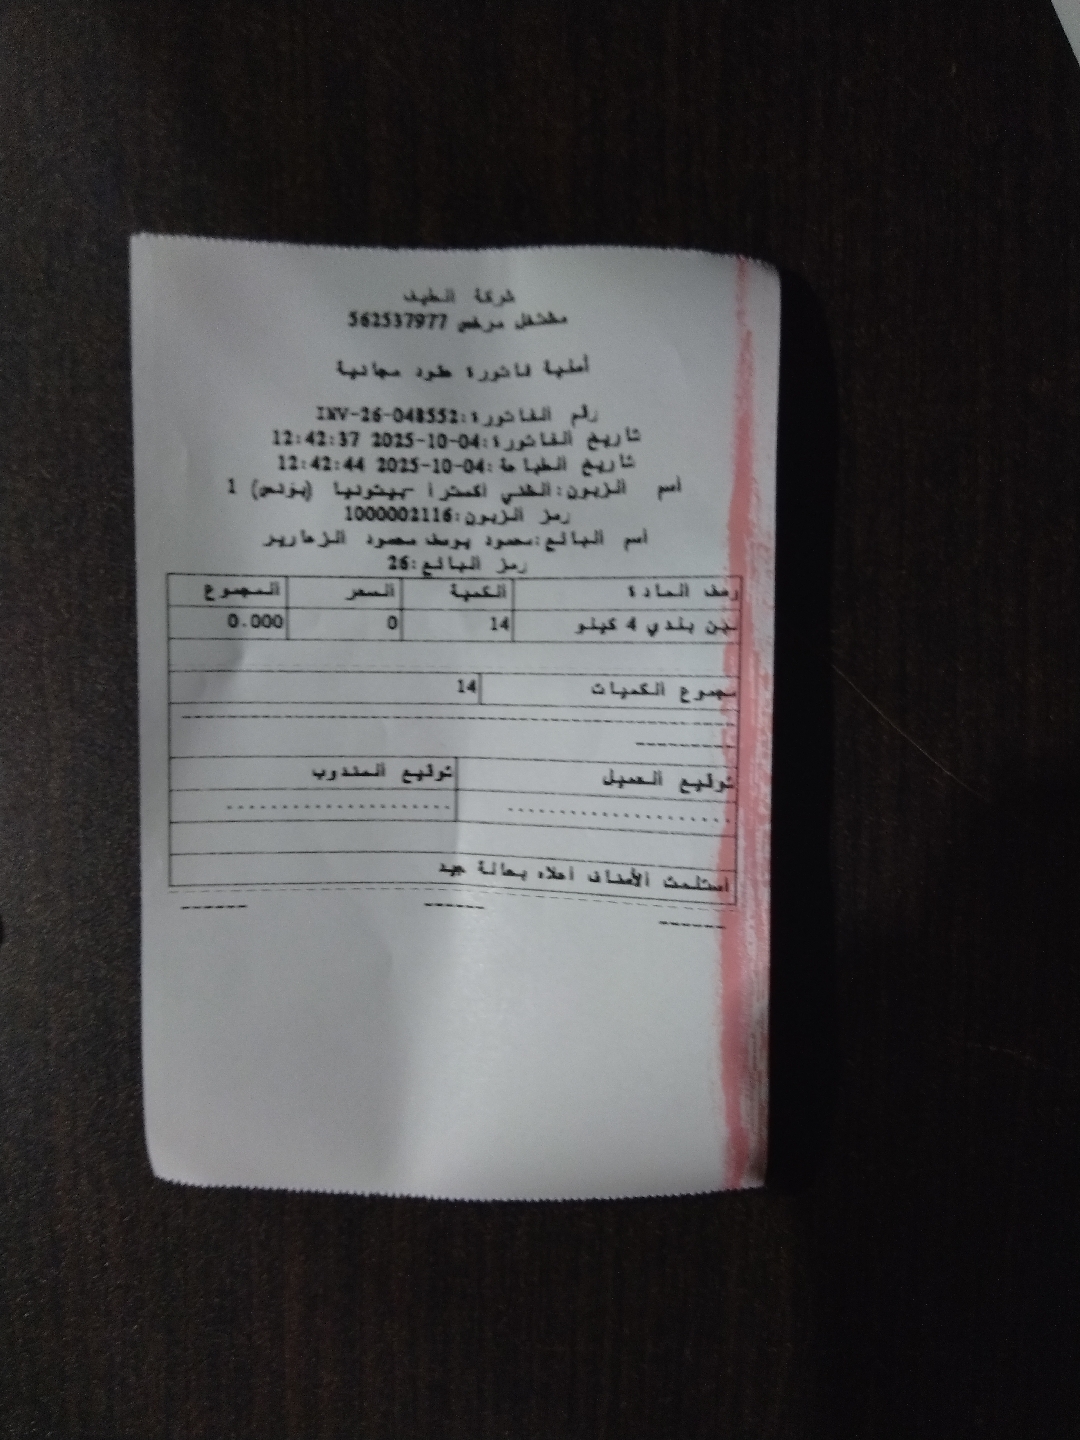 شركة الطيف
مشتغل مرخص 562537977
أصلية فاتورة طرد مجانية
رقم الفاتورة:INV-26-048552
تاريخ الفاتورة:2025-10-04 12:42:37
تاريخ الطباعة:2025-10-04 12:42:44
اسم الزبون: اكسترا بيتونيا 1
رمز الزبون:1000002116
اسم البائع:محمود يوسف محمود الزعارير
رمز البائع:26
وصف المادة الكمية السعر المجموع
بلدي 4 كيلو 14 0 0.000
مجموع الكميات 14
توقيع العميل توقيع المندوب
استلمت الأصناف أعلاه بحالة جيد